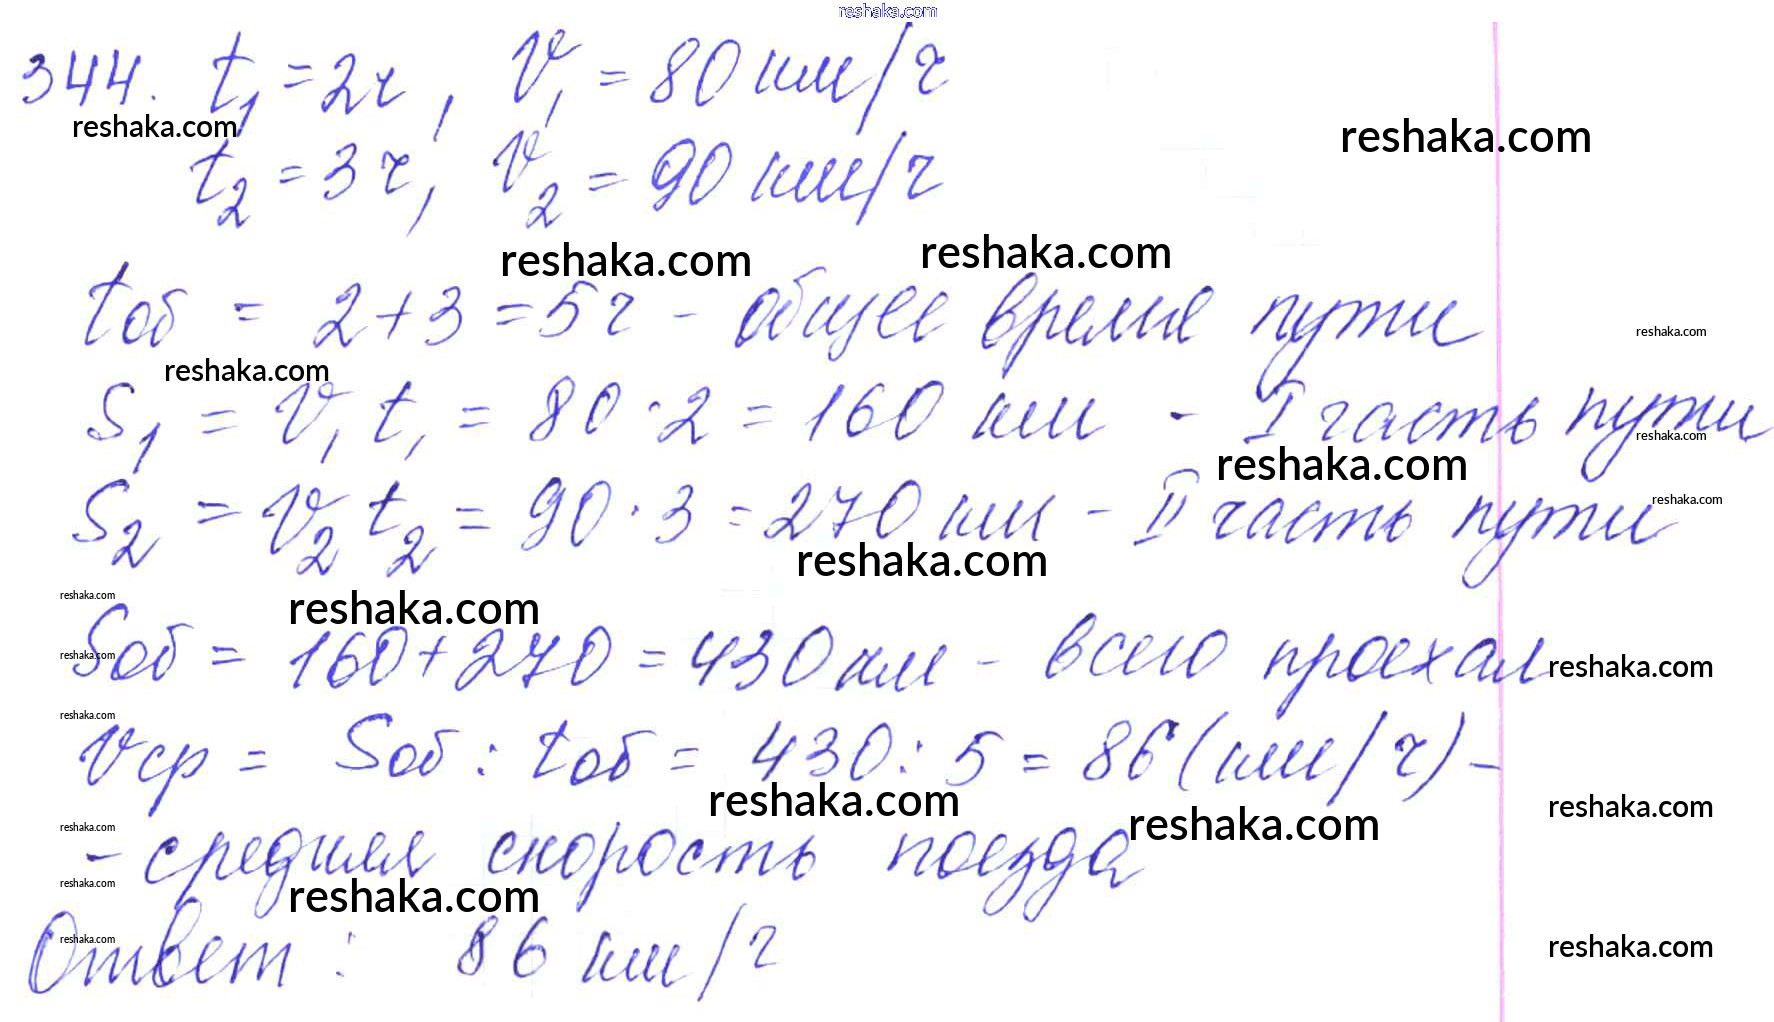 reshaka.com
344. t₁ = 2ч, v₁ = 80 км/ч
reshaka.com
reshaka.com
t₂ = 3 ч, v₂ = 90 км/ч
reshaka.com reshaka.com
tоб = 2+3 = 5 ч - общее время пути
reshaka.com
reshaka.com
S₁ = v₁ t₁ = 80·2 = 160 км - I часть пути
reshaka.com
reshaka.com
reshaka.com
S₂ = v₂ t₂ = 90·3 = 270 км - II часть пути
reshaka.com
reshaka.com
reshaka.com
Sоб = 160+270 = 430 км - всего проехал
reshaka.com
reshaka.com
reshaka.com
vср = Sоб : tоб = 430 : 5 = 86 (км/ч) -
reshaka.com
reshaka.com
reshaka.com
reshaka.com
- средняя скорость поезда
reshaka.com
reshaka.com
Ответ: 86 км/ч
reshaka.com
reshaka.com